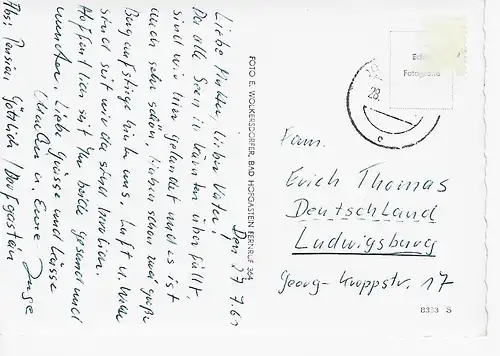 Den 27.7.61
Liebe Mutter, lieber Vater!
Da alle Seen in Kärnten überfüllt
sind wir hier gelandet und es ist
auch sehr schön, haben schon zwei große
Bergaufstiege hinter uns. Luft u. Sonne
sind seit wir da sind herrlich.
Hoffentlich seit Ihr beide gesund und
munter. Liebe Grüsse und Küsse
u. Eure Inge
Abs: Pension Göttlich / Dorfgastein
FOTO E. WOLKERSDORFER, BAD HOFGASTEIN FERNRUF 364
Echte
Fotografie
28.
c
Fam.
Erich Thomas
Deutschland
Ludwigsburg
Georg-Kroppstr. 17
8333 S